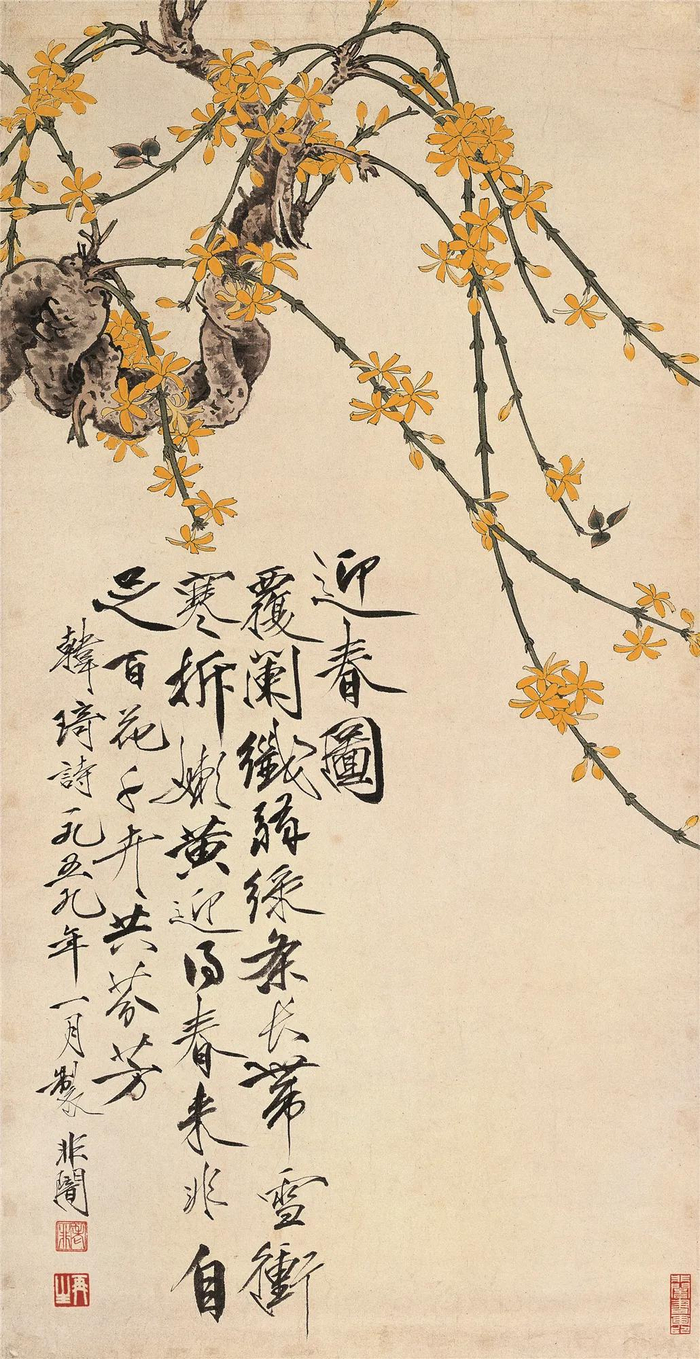 迎春圖
覆闌纖弱綠條長帶雪衝
寒拆嫩黃迎得春來非自
足百花千卉共芬芳
韓琦詩一九五九年一月製 非闇